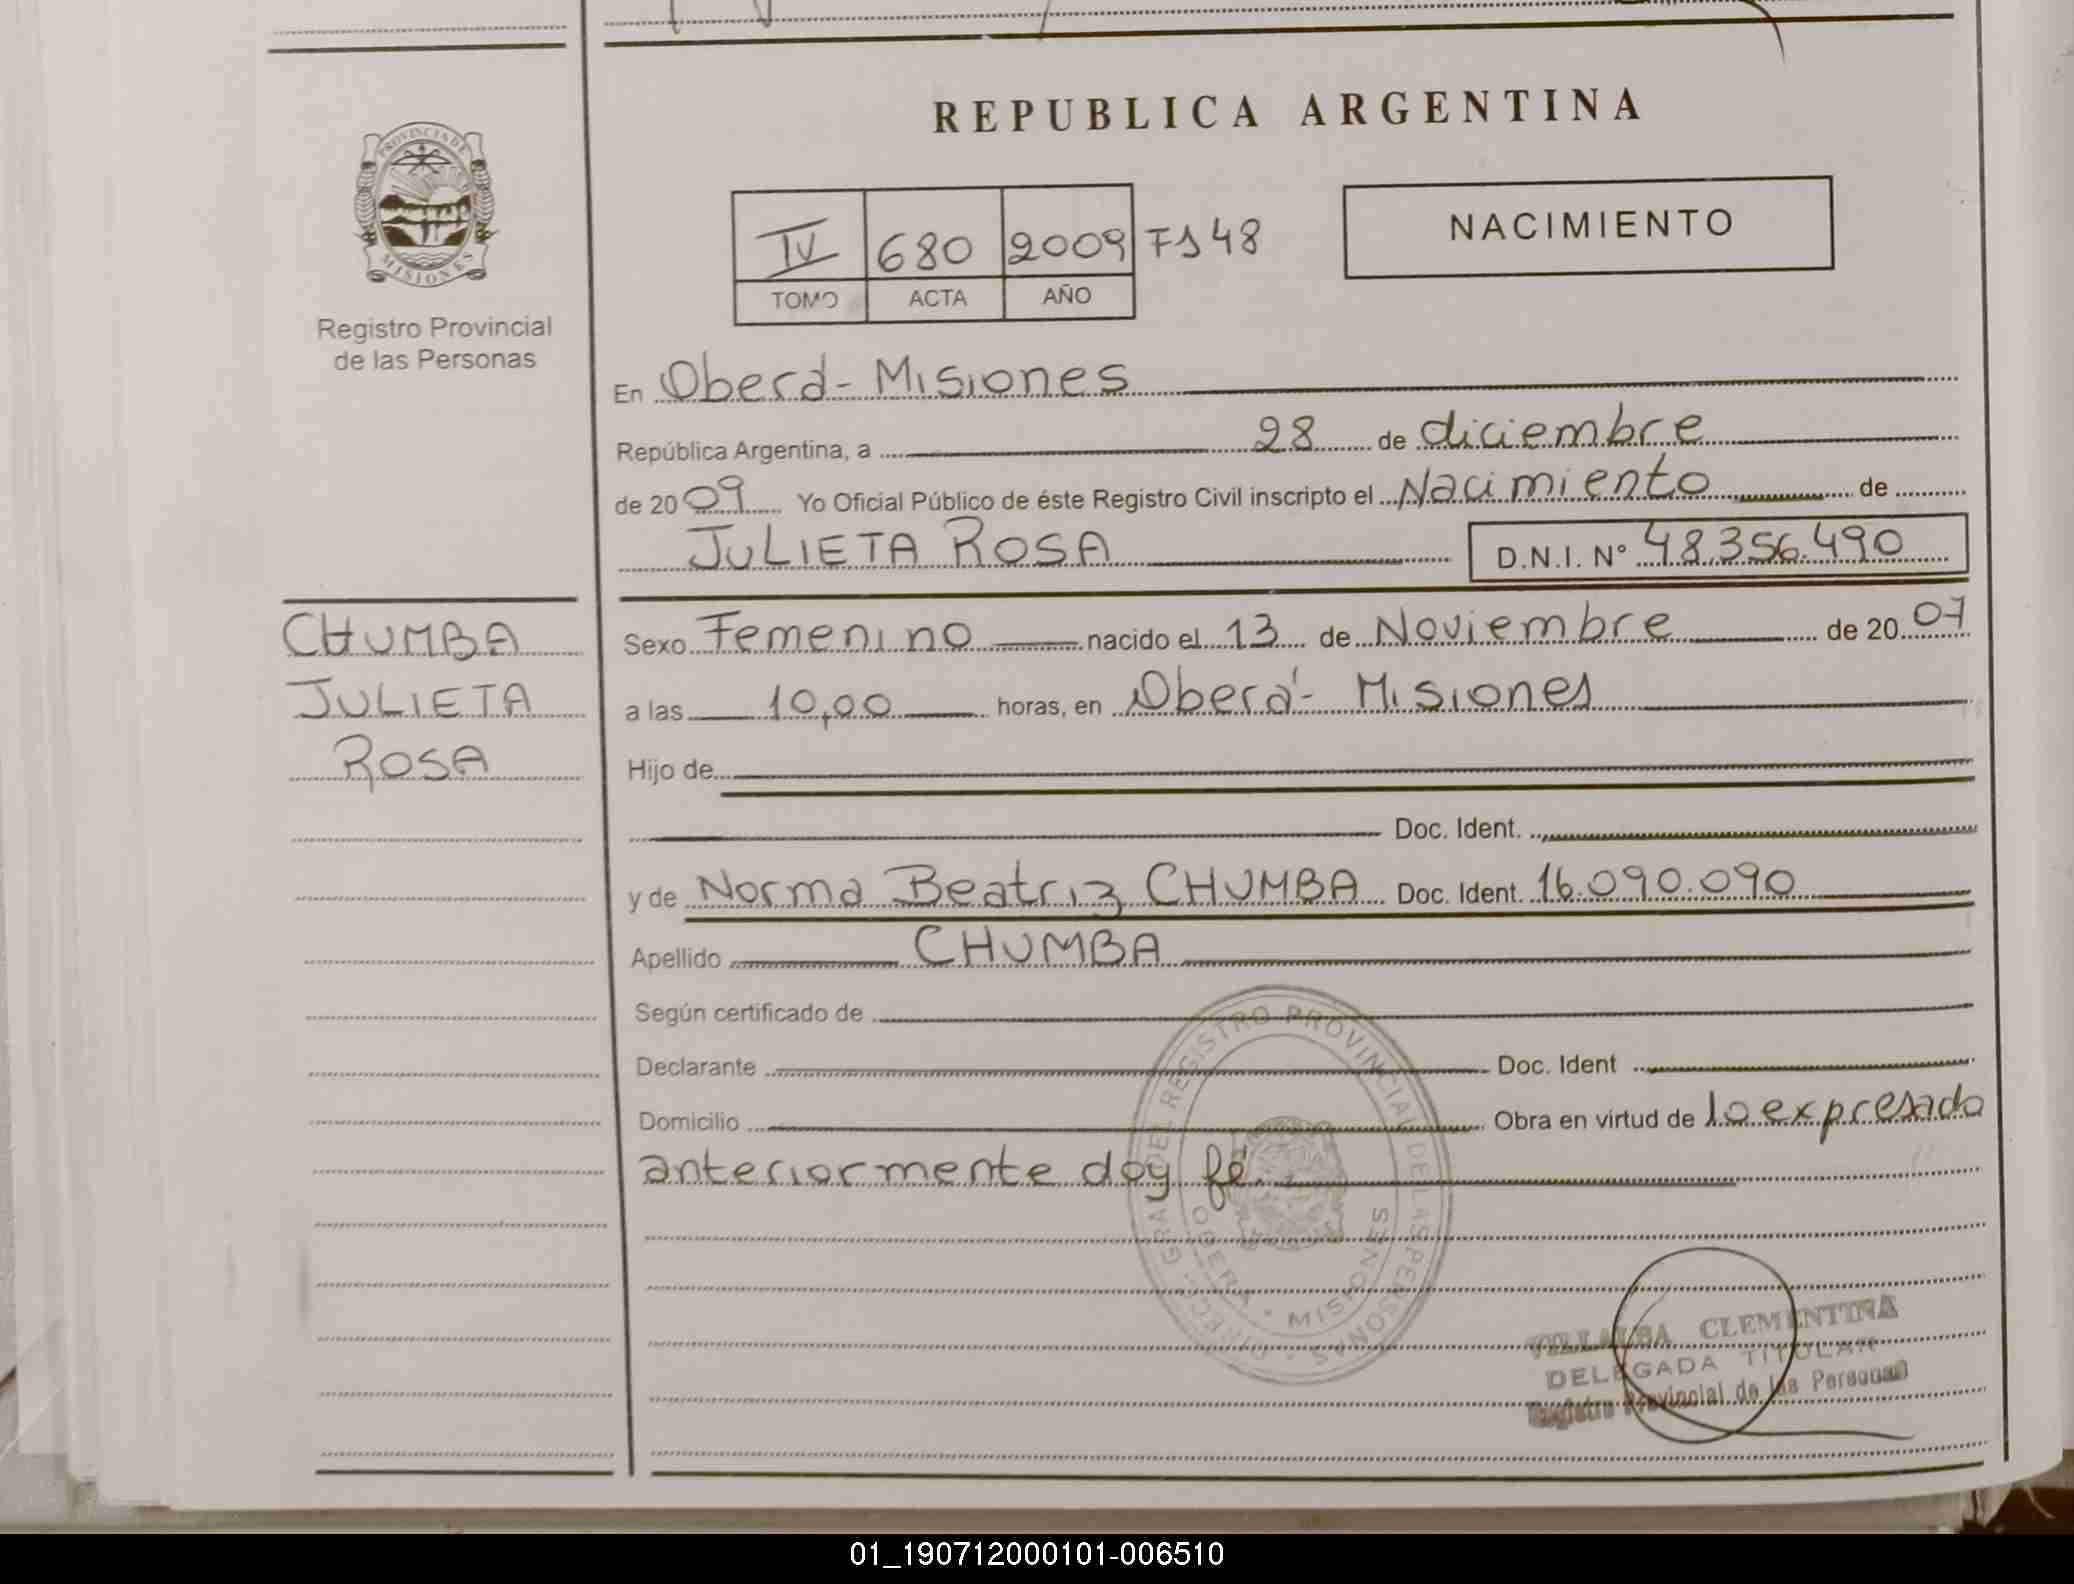 REPUBLICA ARGENTINA
PROVINCIA DE MISIONES
Registro Provincial
de las Personas
IV 680 2009 FS 48
TOMO ACTA AÑO
NACIMIENTO
En Oberá - Misiones
República Argentina, a 28 de diciembre
de 2009 Yo Oficial Público de éste Registro Civil inscripto el Nacimiento de
JULIETA ROSA D.N.I. N° 48.356.490
CHUMBA
JULIETA
ROSA
Sexo Femenino nacido el 13 de Noviembre de 2007
a las 10,00 horas, en Oberá - Misiones
Hijo de
Doc. Ident.
y de Norma Beatriz CHUMBA Doc. Ident. 16.090.090
Apellido CHUMBA
Según certificado de
Declarante Doc. Ident
Domicilio Obra en virtud de lo expresado
anteriormente doy fé.
DIRECC. GRAL DEL REGISTRO PROVINCIAL DE LAS PERSONAS
OBERA - MISIONES
VILLALBA CLEMENTINA
DELEGADA TITULAR
Registro Provincial de las Personas
01_190712000101-006510